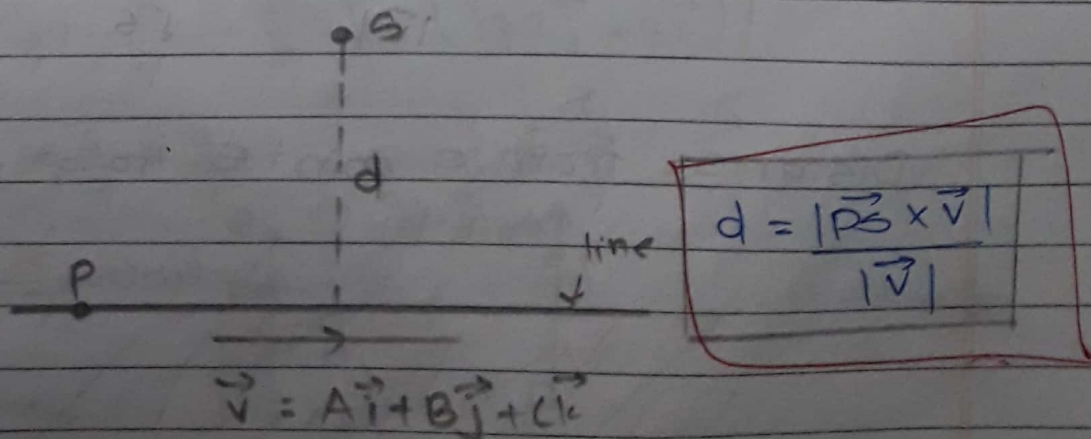 S
d
line
P
d = |PS⃗ × V⃗|
|V⃗|
V⃗ = Ai⃗ + Bj⃗ + Ck⃗